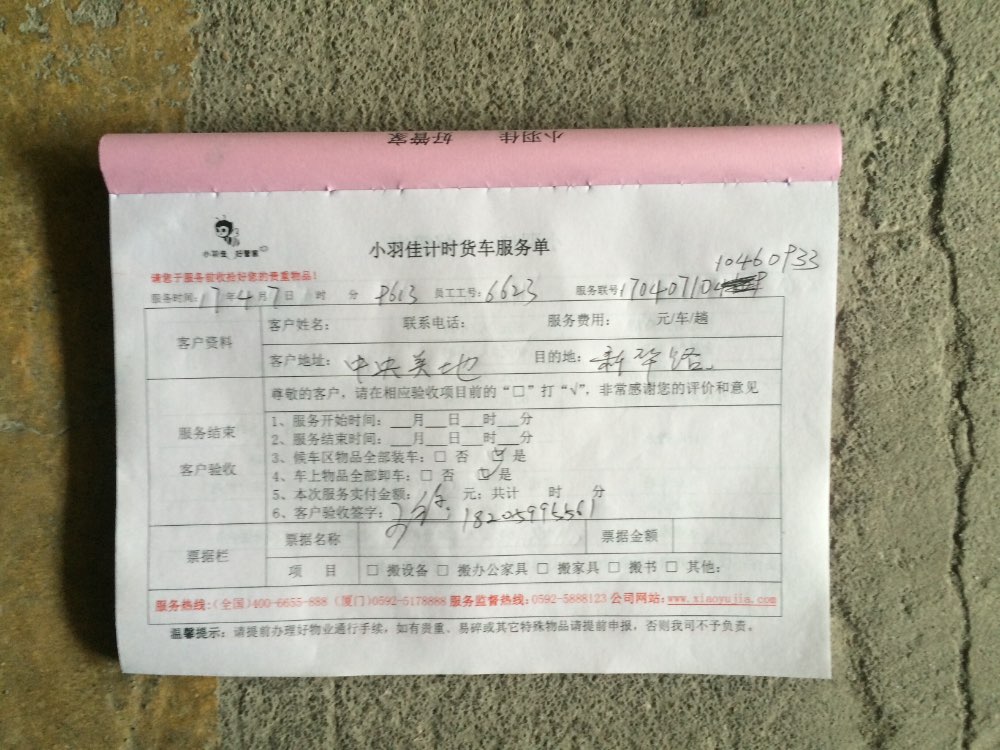 小羽佳 好管家
小羽佳 好管家
小羽佳计时货车服务单
10460933
请您于服务前收拾好您的贵重物品!
服务时间: 17年4月7日 时 分 P613 员工工号: 6623 服务联号 170407104
客户资料
客户姓名: 联系电话: 服务费用: 元/车/趟
客户地址: 中央美地 目的地: 新华路
服务结束
客户验收
尊敬的客户，请在相应验收项目前的“□”打“√”，非常感谢您的评价和意见
1、服务开始时间: ___月___日___时___分
2、服务结束时间: ___月___日___时___分
3、候车区物品全部装车: □ 否 ☑ 是
4、车上物品全部卸车: □ 否 ☑ 是
5、本次服务实付金额: 元; 共计 时 分
6、客户验收签字: 18205995561
票据栏
票据名称 票据金额
项 目 □ 搬设备 □ 搬办公家具 □ 搬家具 □ 搬书 □ 其他:
服务热线:(全国)400-6655-888 (厦门)0592-5178888 服务监督热线:0592-5888123 公司网站:www.xiaoyujia.com
温馨提示: 请提前办理好物业通行手续，如有贵重、易碎或其它特殊物品请提前申报，否则我司不予负责。